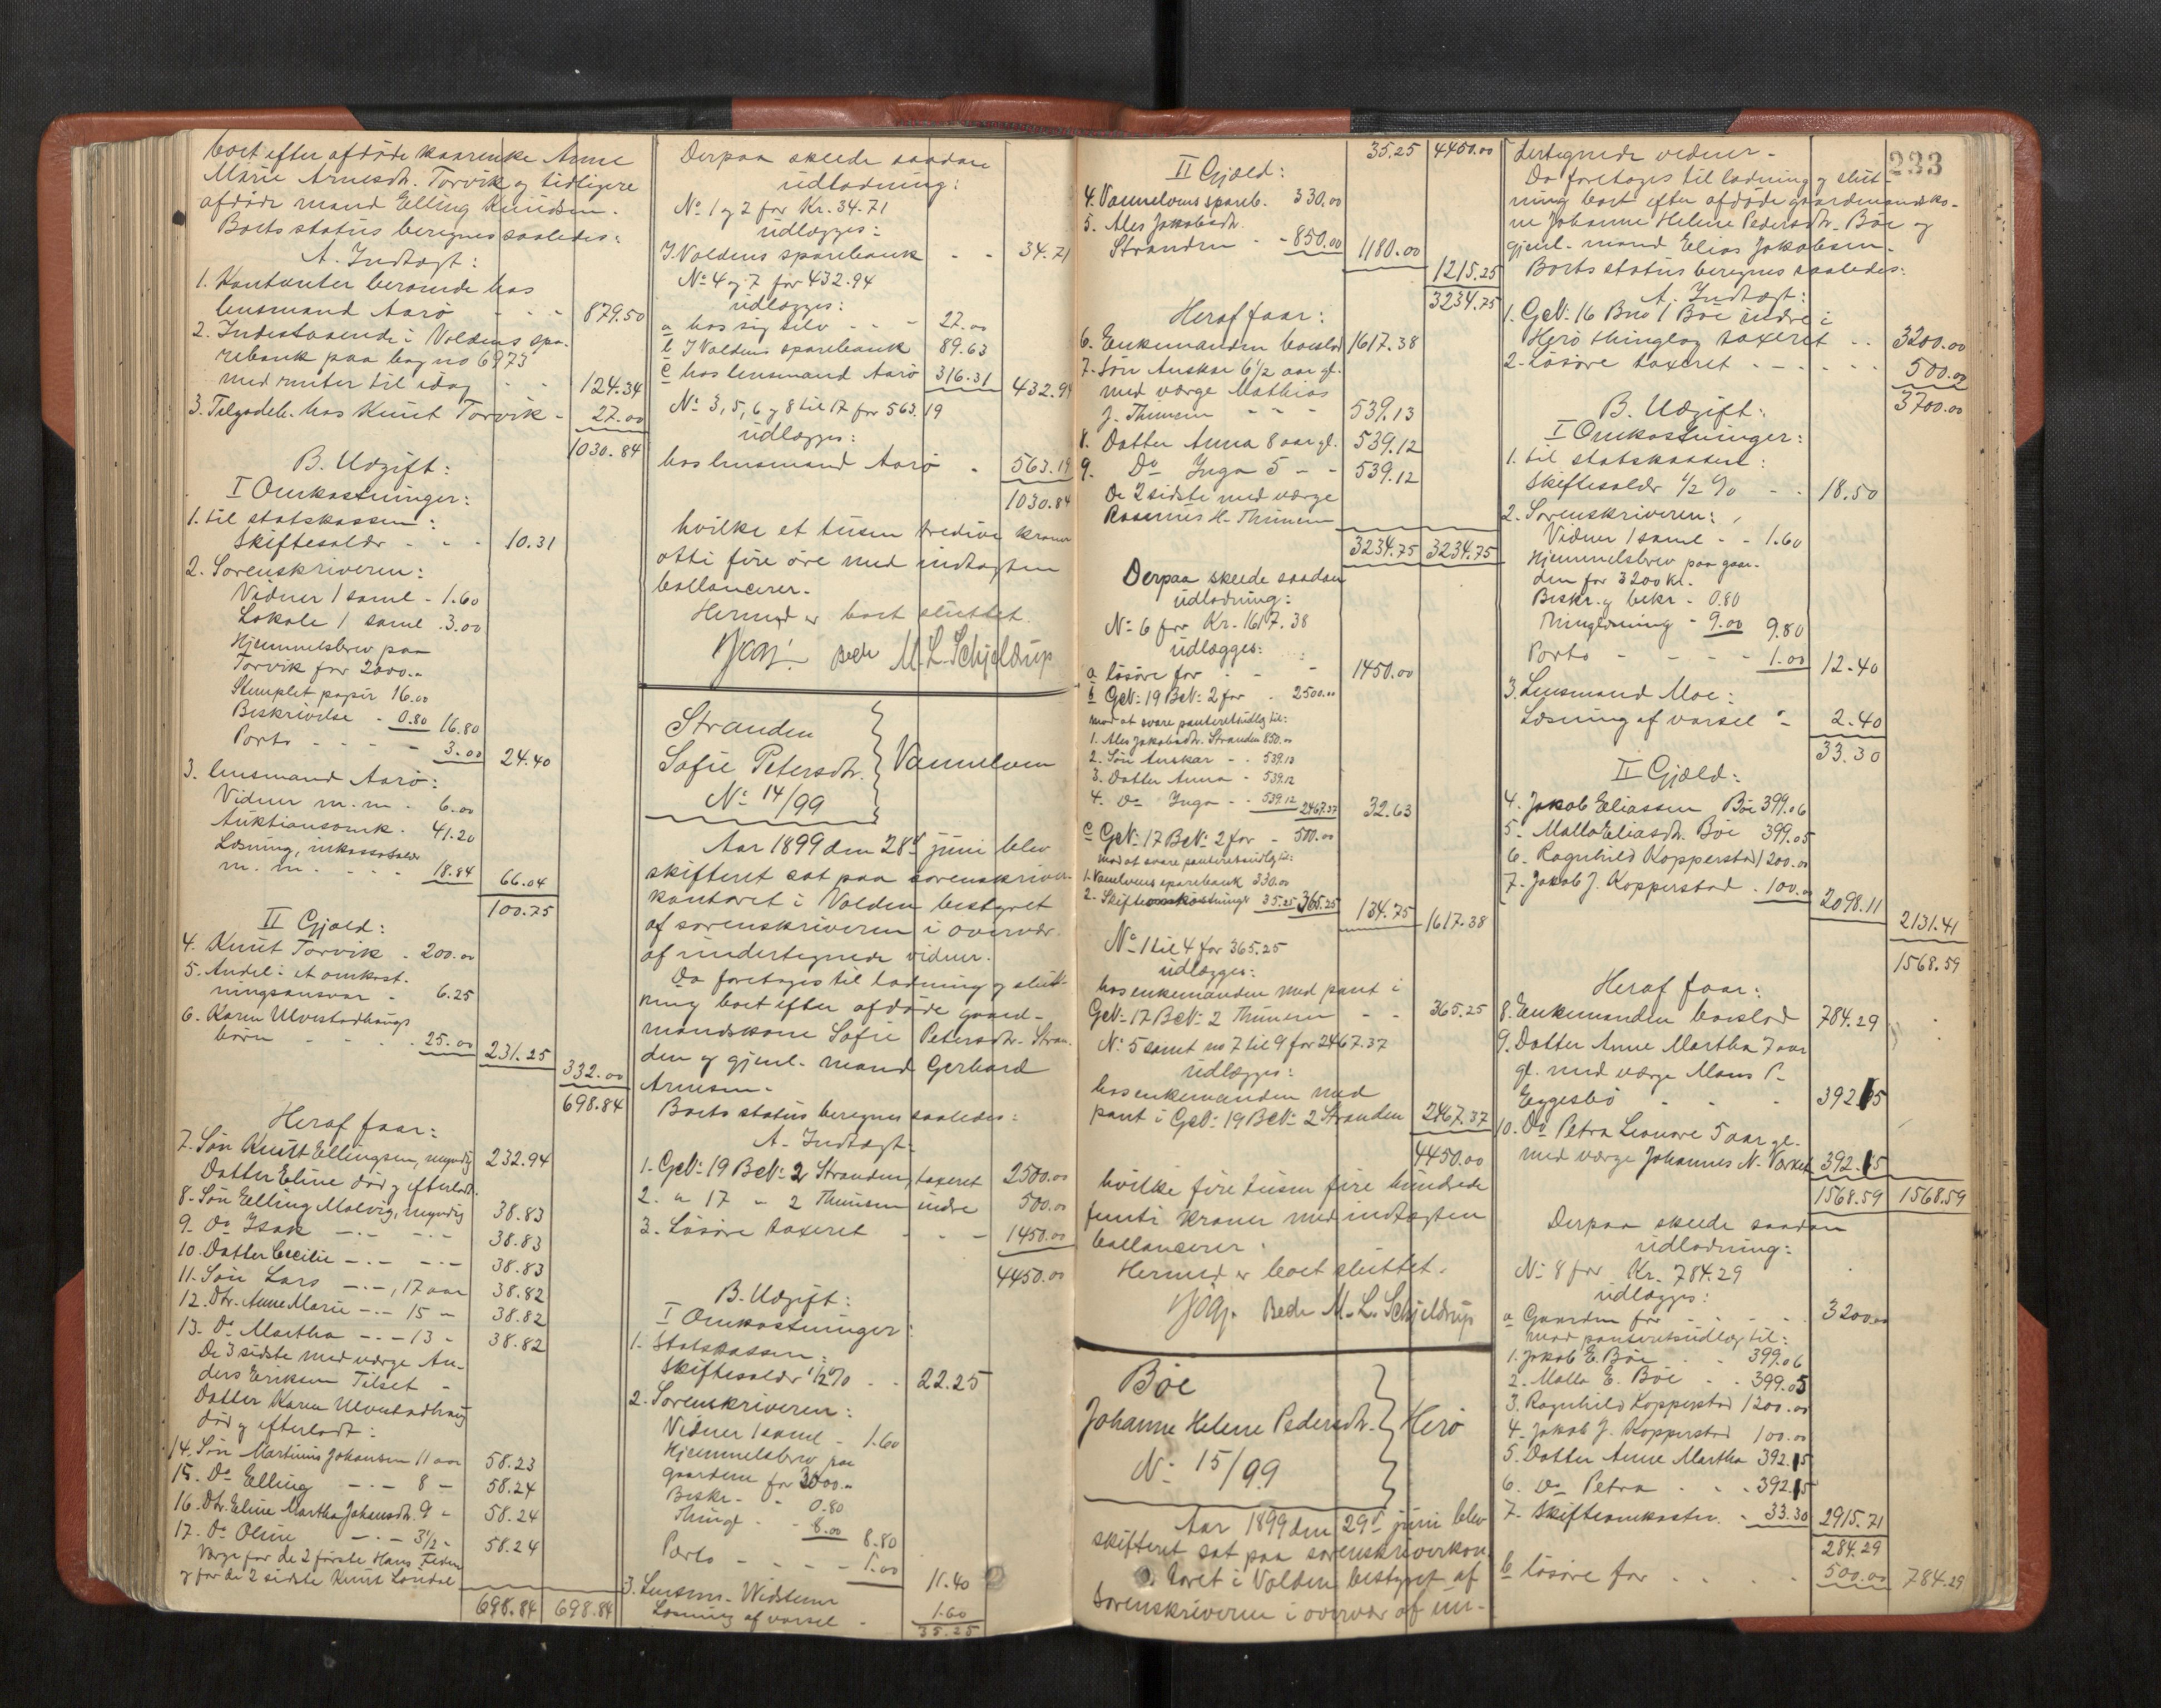 boet efter afdøde kaarenke Anne
Marie Arnesdtr. Torvik og tidligere
afdøde mand Elling Knudsen.
Boets status beregnes saaledes:
A. Indtægt:
1. Kontanter beroende hos
lensmand Aarö - - - 879.50
2. Indestaaende i Voldens spa-
rebank paa bog no 6973
med renter til idag - - 124.34
3. Tilgodeh. hos Knut Torvik - 27.00
1030.84
B. Udgift:
I Omkostninger:
1. til statskassen:
Skiftesalær - - - 10.31
2. Sorenskriveren:
Vidner 1 saml - 1.60
Lokale 1 saml. 3.00
Hjemmelsbrev paa
Torvik for 2000.-
Stemplet papir 16.00
Beskrivelse - 0.80 16.80
Porto - - - - 3.00 24.40
3. lensmand Aarö:
Vidner m.m. - 6.00
Auktionsomk. 41.20
Læsning, inkassosalær
m. m. - - - 18.84 66.04
100.75
II Gjæld:
4. Knut Torvik - 200.00
5. Andel i et omkost-
ningsansvar - 6.25
6. Karen Ulvestadhaugs
børn - - - 25.00 231.25
332.00
698.84
Heraf faar:
7. Søn Knut Ellingsen, myndig 232.94
Datter Eline død og efterladt.
8. Søn Elling Molvig, myndig 38.83
9. Do Isak -.- -.- 38.83
10. Datter Cecilie -.- -.- 38.83
11. Søn Lars -.-, 17 aar 38.82
12. Dtr. Anne Marie -.- 15 - 38.82
13. Do Martha -.- 13 - 38.82
De 3 sidste med værge An-
ders Eriksen Tilset -
Datter Karen Ulvestadhaug
død og efterladt:
14. Søn Martinus Johansen 11 aar 58.23
15. Do Elling -.- 8 - 58.24
16. Dtr. Eline Martha Johansdtr. 9 - 58.24
17. Do Oline -.- 3½ - 58.24
Værge for de 2 første Hans
og for de 2 sidste Knut
698.84 698.84
Derpaa skeede saadan
udlodning:
No 1 og 2 for Kr. 34.71
udlægges:
I Voldens sparebank - - 34.71
No 4 og 7 for 432.94
udlægges:
a hos sig selv - - - 27.00
b I Voldens sparebank 89.63
c hos lensmand Aarö 316.31 432.94
No 3, 5, 6 og 8 til 17 for 563.19
udlægges:
hos lensmand Aarö - 563.19
1030.84
hvilke et tusen tredive kroner
otti fire øre med indtægten
ballancerer.
Hermed er boet sluttet.
Beck M. L. Schjeldrup
Stranden
Sofie Petersdtr. Vannelven
No 14/99
Aar 1899 den 28de juni blev
skifteret sat paa sorenskriver-
kontoret i Volden bestyret
af sorenskriveren i overvær
af undertegnede vidner.
Da foretages til lodning og slut-
ning boet efter afdøde gaard-
mandskone Sofie Petersdtr. Stran-
den og gjenl. mand Gerhard
Arnesen.
Boets status beregnes saaledes:
A. Indtægt.
1. GNo 19 BNo 2 Stranden, taxeret 2500.00
2. " 17 " 2 Thunem indre 500.00
3. Løsøre taxeret - - - 1450.00
4450.00
B. Udgift:
I Omkostninger:
1. Statskassen:
Skiftesalær 1/2 % - - 22.25
2. Sorenskriveren:
Vidner 1 saml - 1.60
Hjemmelsbrev paa
gaardene for 3000.-
Beskr. - - 0.80
Thingl - - 8.00 8.80
Porto - - - - 1.00 11.40
3. Lensm.
Læsning af varsel - 1.60
35.25
35.25 4450.00
II Gjæld:
4. Vannelvens spareb. 330.00
5. Ales Jakobsdtr.
Stranden - - 850.00 1180.00
1215.25
3234.75
Heraf faar:
6. Enkemanden boeslod 1617.38
7. Søn Anskar 6½ aar gl.
med værge Mathias
J. Thunem - - - 539.13
8. Datter Anna 8 aar gl. 539.12
9. Do Inga 5 - - 539.12
De 2 sidste med værge
Rasmus H. Thunem
3234.75 3234.75
Derpaa skeede saadan
udlodning:
No 6 for Kr. 1617.38
udlægges:
a løsøre for - - 1450.00
b GNo 19 BNo 2 for - 2500.00
mod at svare panteretsudlæg til:
1. Ales Jakobsdtr. Stranden 850.00
2. Søn Anskar - - 539.13
3. Datter Anna - 539.12
4. Do Inga - - 539.12 2467.37 32.63
c GNo 17 BNo 2 for - 500.00
mod at svare panteretsudlæg til:
1. Vannelvens sparebank 330.00
2. Skifteomkostninger 35.25 365.25 134.75 1617.38
No 1 til 4 for 365.25
udlægges:
hos enkemanden med pant i
GNo 17 BNo 2 Thunem - - 365.25
No 5 samt no 7 til 9 for 2467.37
udlægges:
hos enkemanden med
pant i GNo 19 BNo 2 Stranden 2467.37
4450.00
hvilke fire tusen fire hundrede
femti kroner med indtægten
ballancerer.
Hermed er boet sluttet.
Beck M. L. Schjeldrup
Böe
Johanne Helene Pedersdtr. Herö
No 15/99
Aar 1899 den 29de juni blev
skifteret sat paa sorenskriverkon-
toret i Volden bestyret af
sorenskriveren i overvær af un-
233
dertegnede vidner.
Da foretages til lodning og slut-
ning boet efter afdøde gaardmandsko-
ne Johanne Helene Pedersdtr. Böe og
gjenl. mand Elias Jakobsen.
Boets status beregnes saaledes:
A. Indtægt:
1. GNo 16 Bno 1 Böe indre i
Herö thinglag taxeret - - 3200.00
2. Løsøre taxeret - - - - 500.00
3700.00
B. Udgift:
I Omkostninger:
1. til statskassen:
Skiftesalær 1/2 % - - 18.50
2. Sorenskriveren:
Vidner 1 saml - - 1.60
Hjemmelsbrev paa gaar-
den for 3200 kr.
Beskr. og bekr. - 0.80
Thinglæsning - 9.00 9.80
Porto - - - - 1.00 12.40
3. Lensmand Moe:
Læsning af varsel - 2.40
33.30
II Gjæld:
4. Jakob Eliassen Böe 399.06
5. Malla Eliasdtr. Böe 399.05
6. Ragnhild Kopperstad 1200.00
7. Jakob J. Kopperstad - 100.00 2098.11
2131.41
1568.59
Heraf faar:
8. Enkemanden boeslod 784.29
9. Datter Anne Martha 7 aar
gl. med værge Mons P.
Eggesbö - - - 392.15
10. Do Petra Leonore 5 aar gl.
med værge Johannes N. 392.15
1568.59 1568.59
Derpaa skeede saadan
udlodning:
No 8 for Kr. 784.29
udlægges:
a Gaarden for - - - 3200.00
mod panteretsudlæg til:
1. Jakob E. Böe - - 399.06
2. Malla E. Böe - - 399.05
3. Ragnhild Kopperstad 1200.00
4. Jakob J. Kopperstad 100.00
5. Datter Anne Martha 392.15
6. Do Petra - - - 392.15
7. Skifteomkostn. - 33.30 2915.71
284.29
b løsøre for - - - - 500.00 784.29